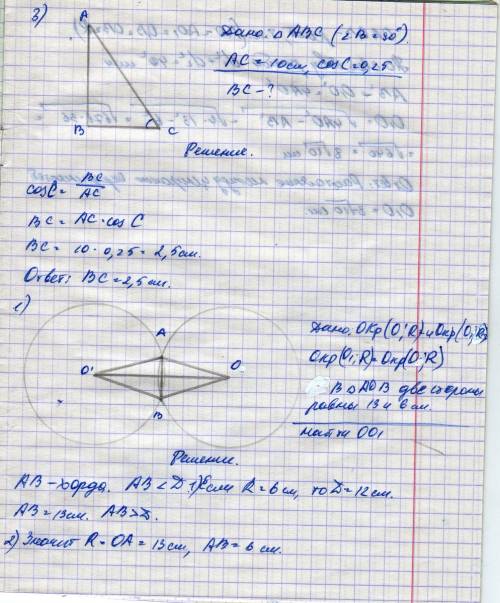 3)
A
B
C
C
Дано: △ ABC (∠B=90°).
AC = 10см, cosC=0,25
BC - ?
Решение.
cosC = BC/AC
BC = AC · cos C
BC = 10 · 0,25 = 2,5 см.
Ответ: BC = 2,5 см.
1)
A
O'
O
B
Дано: Окр(O'; R) и Окр(O; R)
Окр(O'; R)=Окр(O; R)
В △ AOB две стороны
равны 13 и 6 см.
найти OO1
Решение.
AB - хорда. AB < D 1) Если R = 6 см, то D = 12 см.
AB = 13см. AB > D.
2) Значит R = OA = 13 см, AB = 6 см.